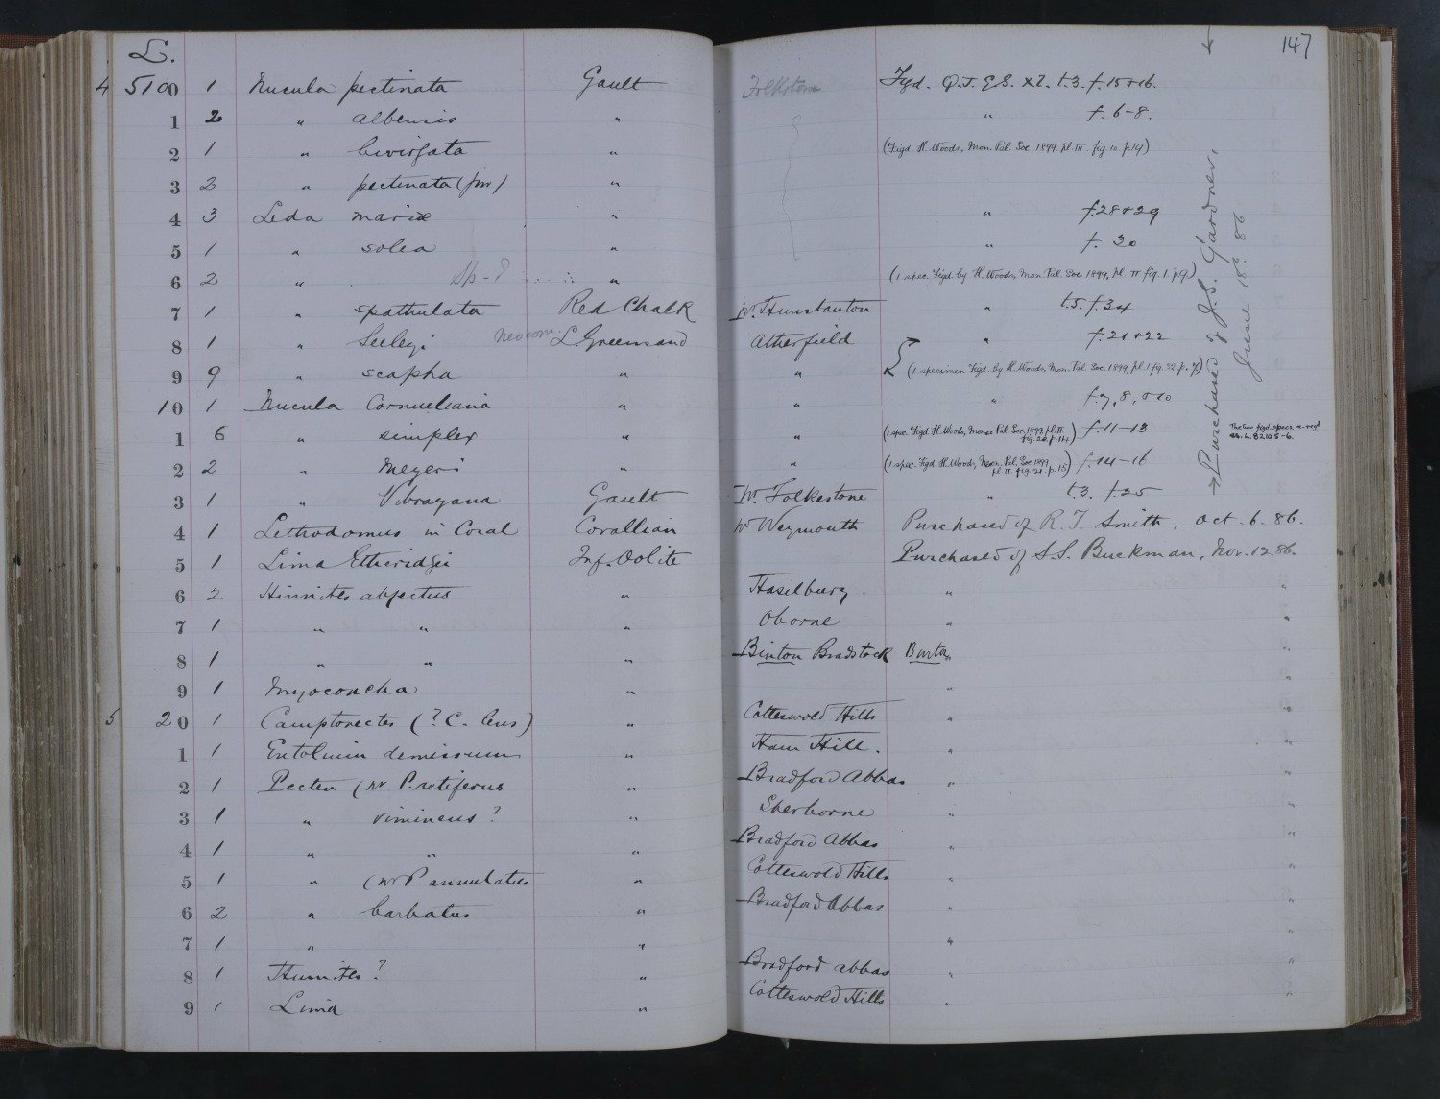 L.
147
4 5100 1 Nucula pectinata Gault Folkstone Figd. Q.J.G.S. XL. t.3. f.15+16.
1 2 " albensis " " f. 6-8.
2 1 " bivirgata " (Figd H. Woods, Mon. Pal. Soc 1899. pl. II. fig. 10. p.14)
3 2 " pectinata (juv) "
4 3 Leda mariæ " " f.28+29
5 1 " solea " " f. 30
6 2 " Sp-? " (1 spec. Figd. by H. Woods, Mon. Pal. Soc 1899, pl. II fig. 1. p9)
7 1 " spathulata Red Chalk Nr. Hunstanton " t.5. f.34
8 1 " Seelegi neocom. L Greensand Atherfield " f.21+22
9 9 " scapha " " (1 specimen Figd. by H. Woods, Mon. Pal. Soc. 1899, pl. I fig. 32 p.
10 1 Nucula Cornueliana " " " f.7, 8, +10
1 6 " simplex " " (1 spec. Figd H. Woods, Mono. Pal. Soc. 1899, pl. II. fig. 20. p.14) f.11-13
The two figd. specs. n-regd as. L. 82105-6.
2 2 " Meyeri " " (1 spec. Figd H. Woods, Mon. Pal. Soc 1899. pl. II. fig. 21. p.15) f.14-16
3 1 " Vibrayana Gault Nr. Folkestone " t.3. f.25
Purchased of J.S. Gardner,
June 18. 86
4 1 Lithodomus in Coral Corallian Nr Weymouth Purchased of R. J. Smith. Oct. 6. 86.
5 1 Lima Etheridgii Inf. Oolite Purchased of S.S. Buckman, Nov. 12 86.
6 2 Hinnites abjectus " Haselbury " "
7 1 " " " Oborne " "
8 1 " " " Binton Bradstock Burton "
9 1 Myoconcha " " "
5 20 1 Camptonectes (? C. lens) " Cotteswold Hills " "
1 1 Entolium demissum " Ham Hill. " "
2 1 Pecten (nr P. retiferus " Bradford Abbas " "
3 1 " vimineus? " Sherborne " "
4 1 " " " Bradford Abbas " "
5 1 " (nr P annulatus " Cotteswold Hills " "
6 2 " barbatus " Bradford Abbas " "
7 1 " " " "
8 1 Hinnites? " Bradford abbas " "
9 1 Lima " Cotteswold Hills " "